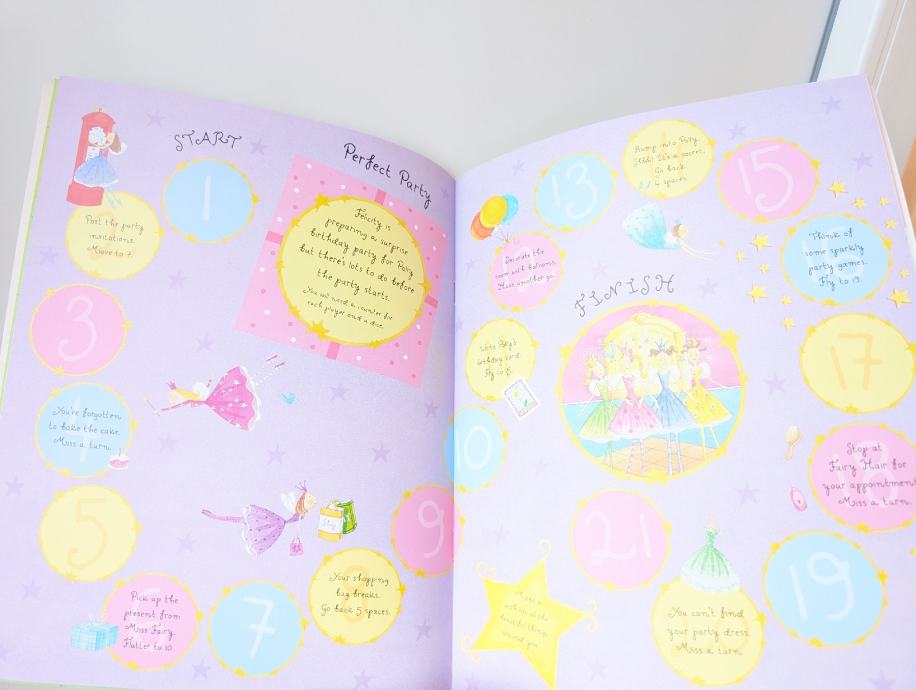 START
1
Post the party
invitations.
Move to 7.
3
You've forgotten
to bake the cake.
Miss a turn.
5
Pick up the
present from
Miss Fairy.
Flutter to 10.
7
Your shopping
bag breaks.
Go back 5 spaces.
9
Perfect Party
Felicity is
preparing a surprise
birthday party for Polly
but there's lots to do before
the party starts.
You will need a counter for
each player and a dice.
10
birthday card.
Fly to
Decorate the
room with balloons.
Have another go.
13
Bump into Polly.
Shhh! It's a secret.
Go back
4 spaces.
15
Think of
some sparkly
party games.
Fly to 19.
17
18
Stop at
Fairy Hair for
your appointment
Miss a turn.
19
You can't find
your party dress.
Miss a turn.
21
FINISH
beautiful things
around you.